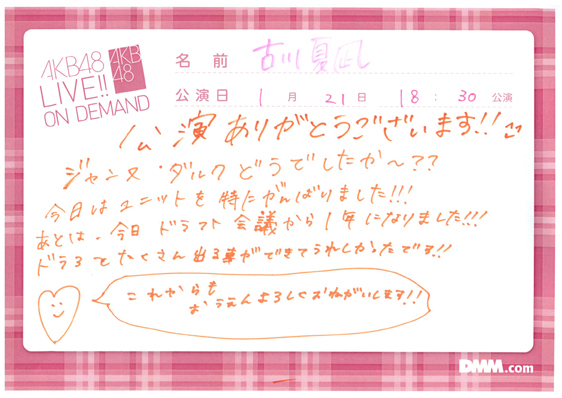 AKB48
LIVE!!
ON DEMAND
AKB
48
名前 古川夏凪
公演日 1月21日 18:30公演
公演ありがとうございます!!
ジャンヌ・ダルクどうでしたか〜??
今日はユニットを特にがんばりました!!!
あとは、今日ドラフト会議から1年になりました!!!
ドラ3でたくさん出る事ができてうれしかったです!!
これからも
おうえんよろしくおねがいします!!
DMM.com